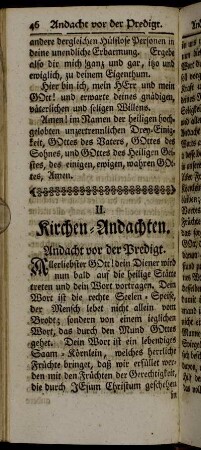 46 Andacht vor der Predigt.
andere dergleichen Hülflose Personen in
deine unendliche Erbarmung. Ergebe
also dir mich ganz und gar, itzo und
ewiglich, zu deinem Eigenthum.
Hier bin ich, mein HErr und mein
GOtt! und erwarte deines gnädigen,
väterlichen und seligen Willens.
Amen! im Namen der heiligen hoch-
gelobten unzertrennlichen Drey-Einig-
keit, GOttes des Vaters, GOttes des
Sohnes, und GOttes des Heiligen Gei-
stes, des einigen, ewigen, wahren GOt-
tes, Amen.
II.
Kirchen-Andachten.
Andacht vor der Predigt.
Allerliebster GOtt! dein Diener wird
nun bald auf die heilige Stätte
treten und dein Wort vortragen. Dein
Wort ist die rechte Seelen-Speise,
der Mensch lebet nicht allein vom
Brodt; sondern von einem ieglichen
Wort, das durch den Mund GOttes
gehet. Dein Wort ist ein lebendiges
Saam-Körnlein, welches herrliche
Früchte bringet, daß wir erfüllet wer-
den mit den Früchten der Gerechtigkeit,
die durch JEsum Christum geschehen
in